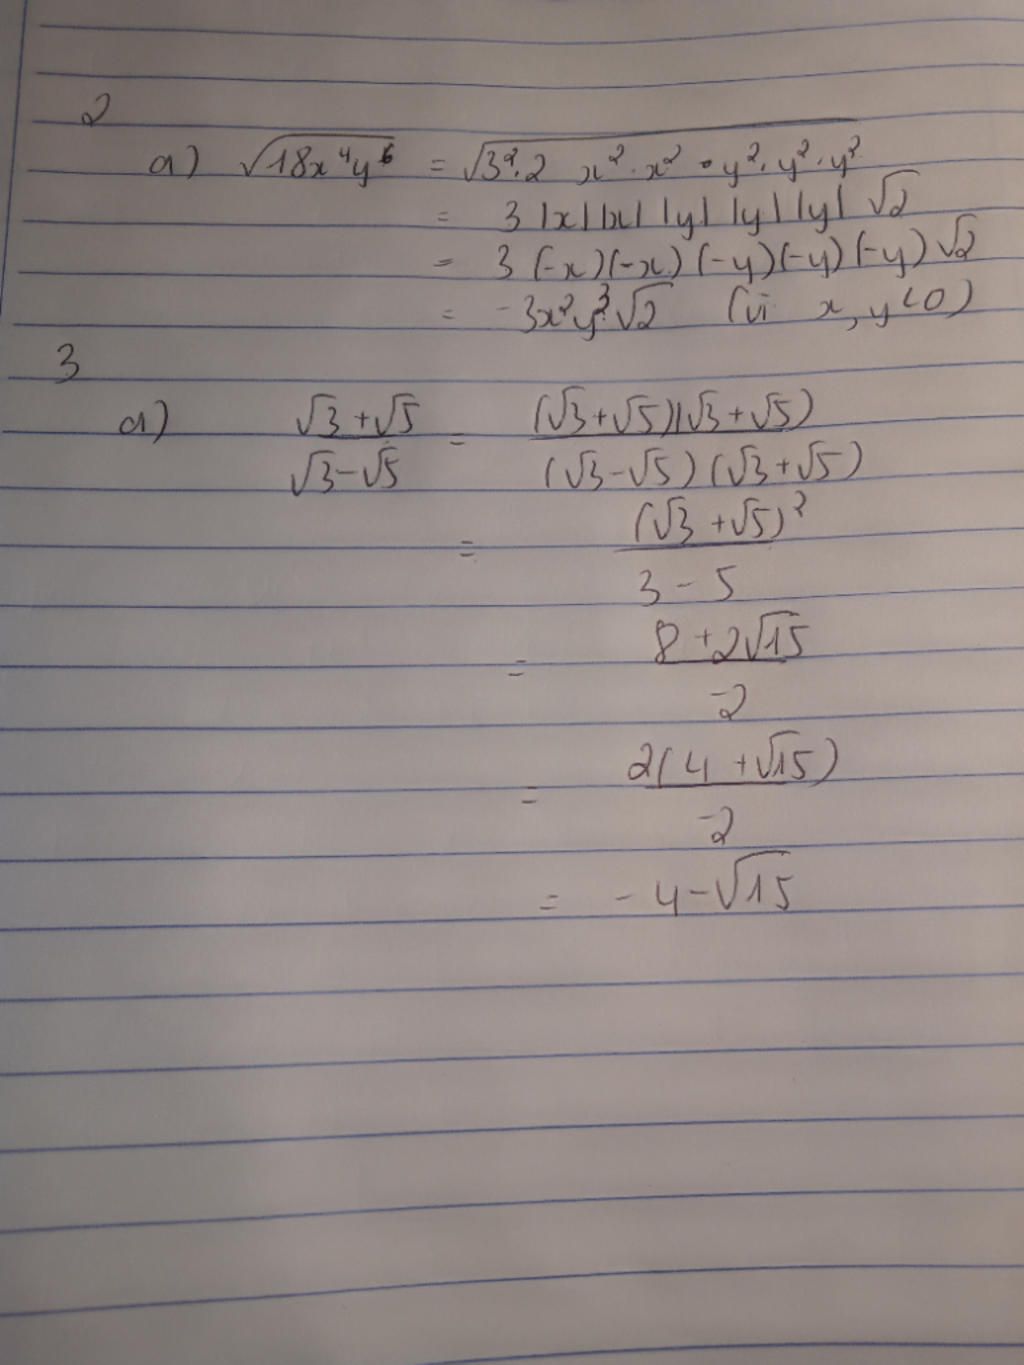 2
a) √18x⁴y⁶ = √3².2 x².x².y².y².y²
= 3|x||x||y||y||y|√2
= 3(-x)(-x)(-y)(-y)(-y)√2
= -3x²y³√2 (vì x, y<0)
3
a) (√3+√5)/(√3-√5) = (√3+√5)(√3+√5)/(√3-√5)(√3+√5)
= (√3+√5)²/3-5
= 8+2√15/-2
= 2(4+√15)/-2
= -4-√15